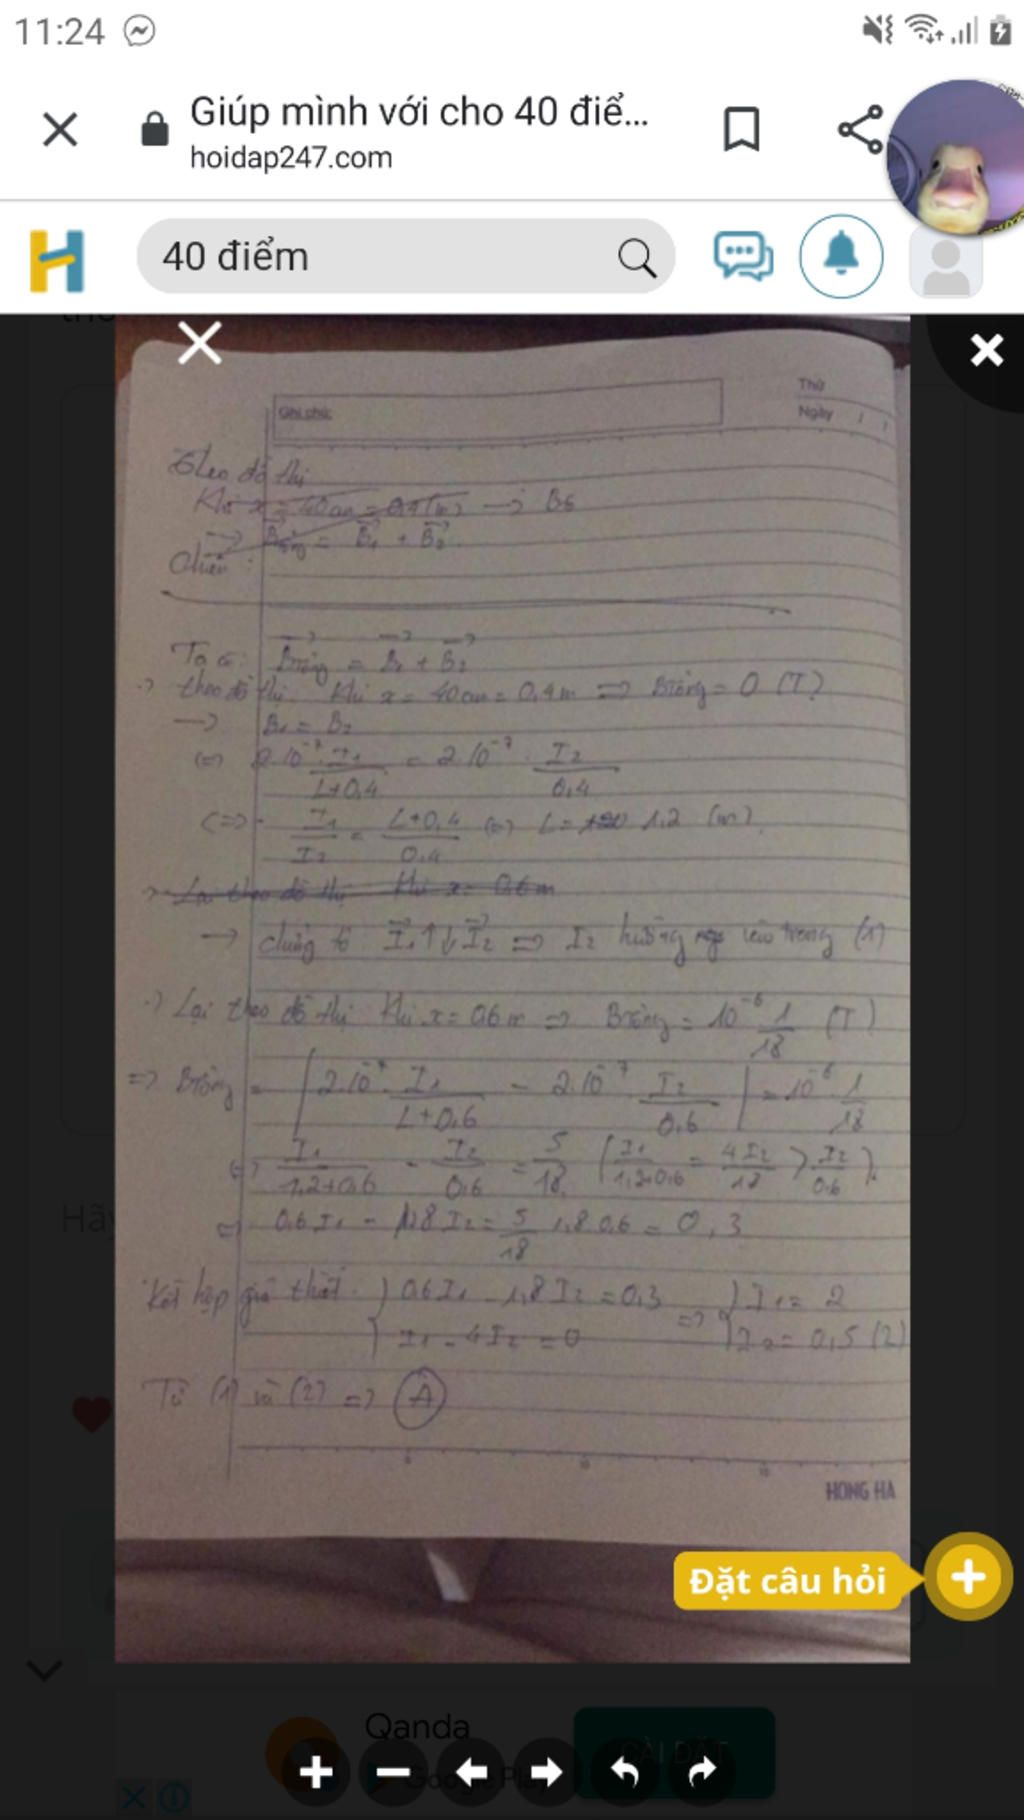 11:24
Giúp mình với cho 40 điể...
hoidap247.com
40 điểm
Ghi chú:
Thứ
Ngày / /
Theo đồ thị
Khi x = 40cm = 0,4(m) → B
→ B = B₁ + B₂
Chiều
Ta có: Btổng = B₁ + B₂
theo đồ thị. Khi x = 40cm = 0,4m ⇒ Btổng = 0 (T)
→ B₁ = B₂
(=) 2.10⁻⁷. I₁ / L+0,4 = 2.10⁻⁷. I₂ / 0,4
(=> I₁ / I₂ = L+0,4 / 0,4 (=) L = 1,2 (m)
Lại theo đồ thị Khi x = 0,6m
→ chứng tỏ: I₁↑↓I₂ ⇒ I₂ hướng vào trong (1)
Lại theo đồ thị Khi x = 0,6m ⇒ Btổng = 10⁻⁶ 1/18 (T)
=> Btổng = | 2.10⁻⁷. I₁ / L+0,6 - 2.10⁻⁷. I₂ / 0,6 | = 10⁻⁶. 1/18
(=) I₁ / 1,2+0,6 - I₂ / 0,6 = 5/18. ( I₁ / 1,2+0,6 = 4I₂ / 1,8 > I₂ / 0,6 ).
(=) 0,6I₁ - 1,8I₂ = 5/18 .1,8.0,6 = 0,3
Kết hợp giả thiết. { 0,6I₁ - 1,8I₂ = 0,3 => { I₁ = 2
I₁ - 4I₂ = 0 I₂ = 0,5 (2)
Từ (1) và (2) => A
5 10 15
HONG HA
Hãy
Đặt câu hỏi
Qanda
CÀI ĐẶT
Google Play